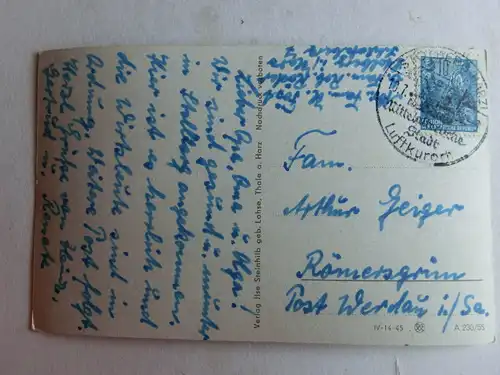 Lieber Opa, Oma u. Olga!
Wir sind gesund u. munter
in Stolberg angekommen.
Hier ist es herrlich und
die Wirtsleute sind in
Ordnung. Weitere Post folgt.
Herzl. Grüße von Hans,
Gertrud u. Renate
Verlag Ilse Steinhilb geb. Lohse, Thale a. Harz Nachdruck verboten
Fam.
Arthur Geiger
Römersgrün
Post Werdau i/Sa.
10
Stadt
Luftkurort
IV-14-45
A 233/55